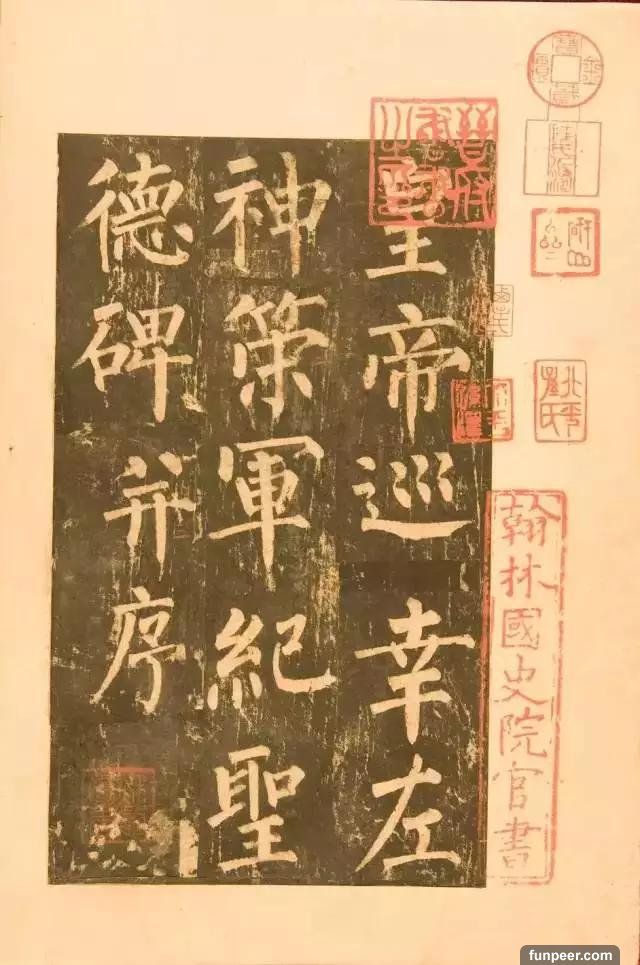 皇帝巡幸左
神策軍紀聖
德碑并序
翰林國史院官書
晉府
北平
孫氏
funpeer.com